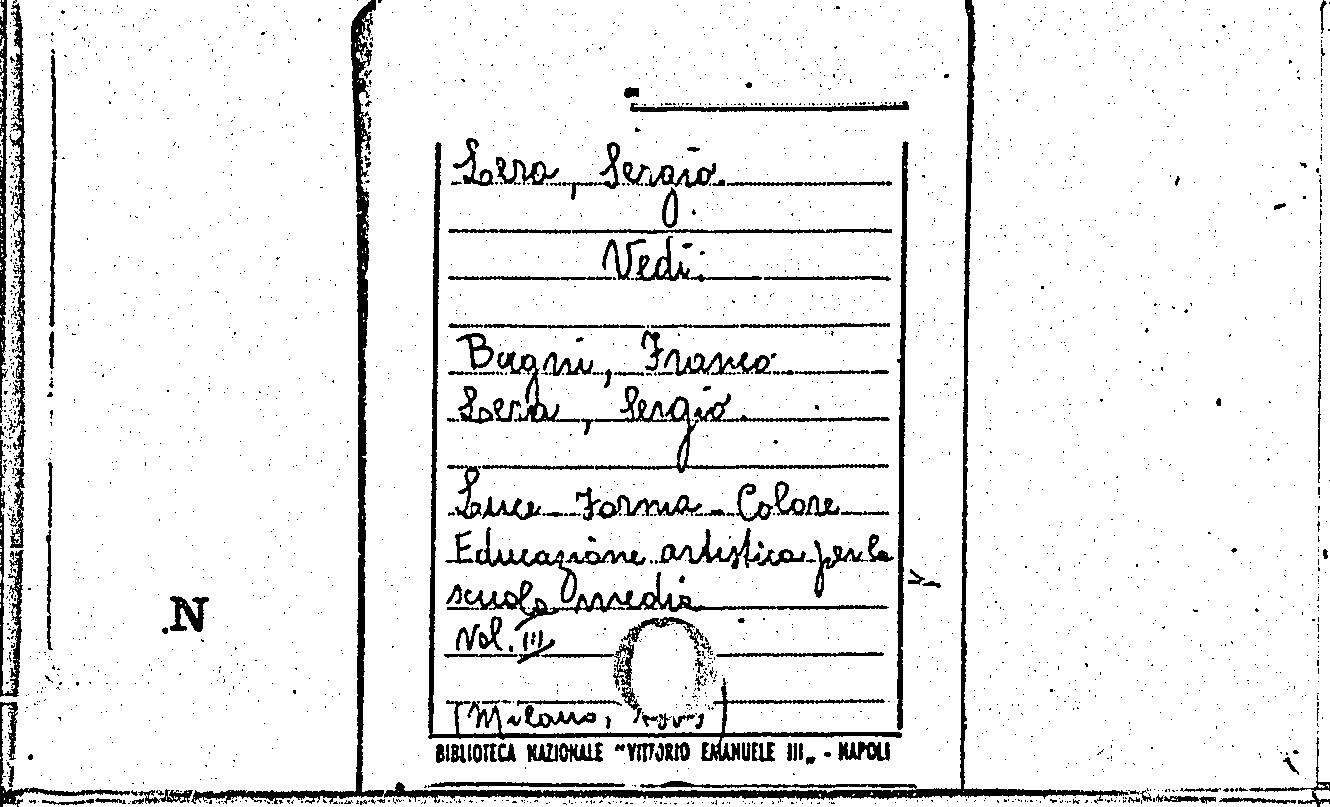 Lera, Sergio.
Vedi:
Bagni, Franco.
Lera, Sergio.
Luce - Forma - Colore
Educazione artistica per la
scuola media
Vol. III
(Milano,
BIBLIOTECA NAZIONALE "VITTORIO EMANUELE III„ - NAPOLI
N